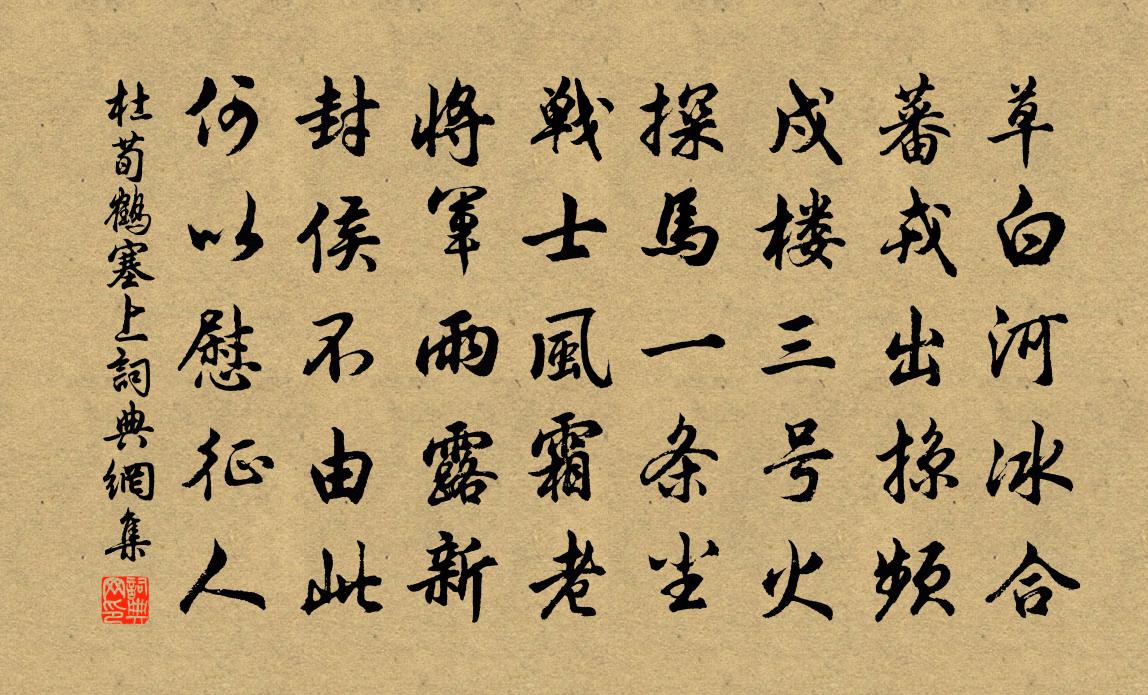 草白河冰合
蕃戎出掠频
戍楼三号火
探馬一条尘
戦士風霜老
將軍雨露新
封侯不由此
何以慰征人
杜荀鶴塞上詞典網集
詞典
网印